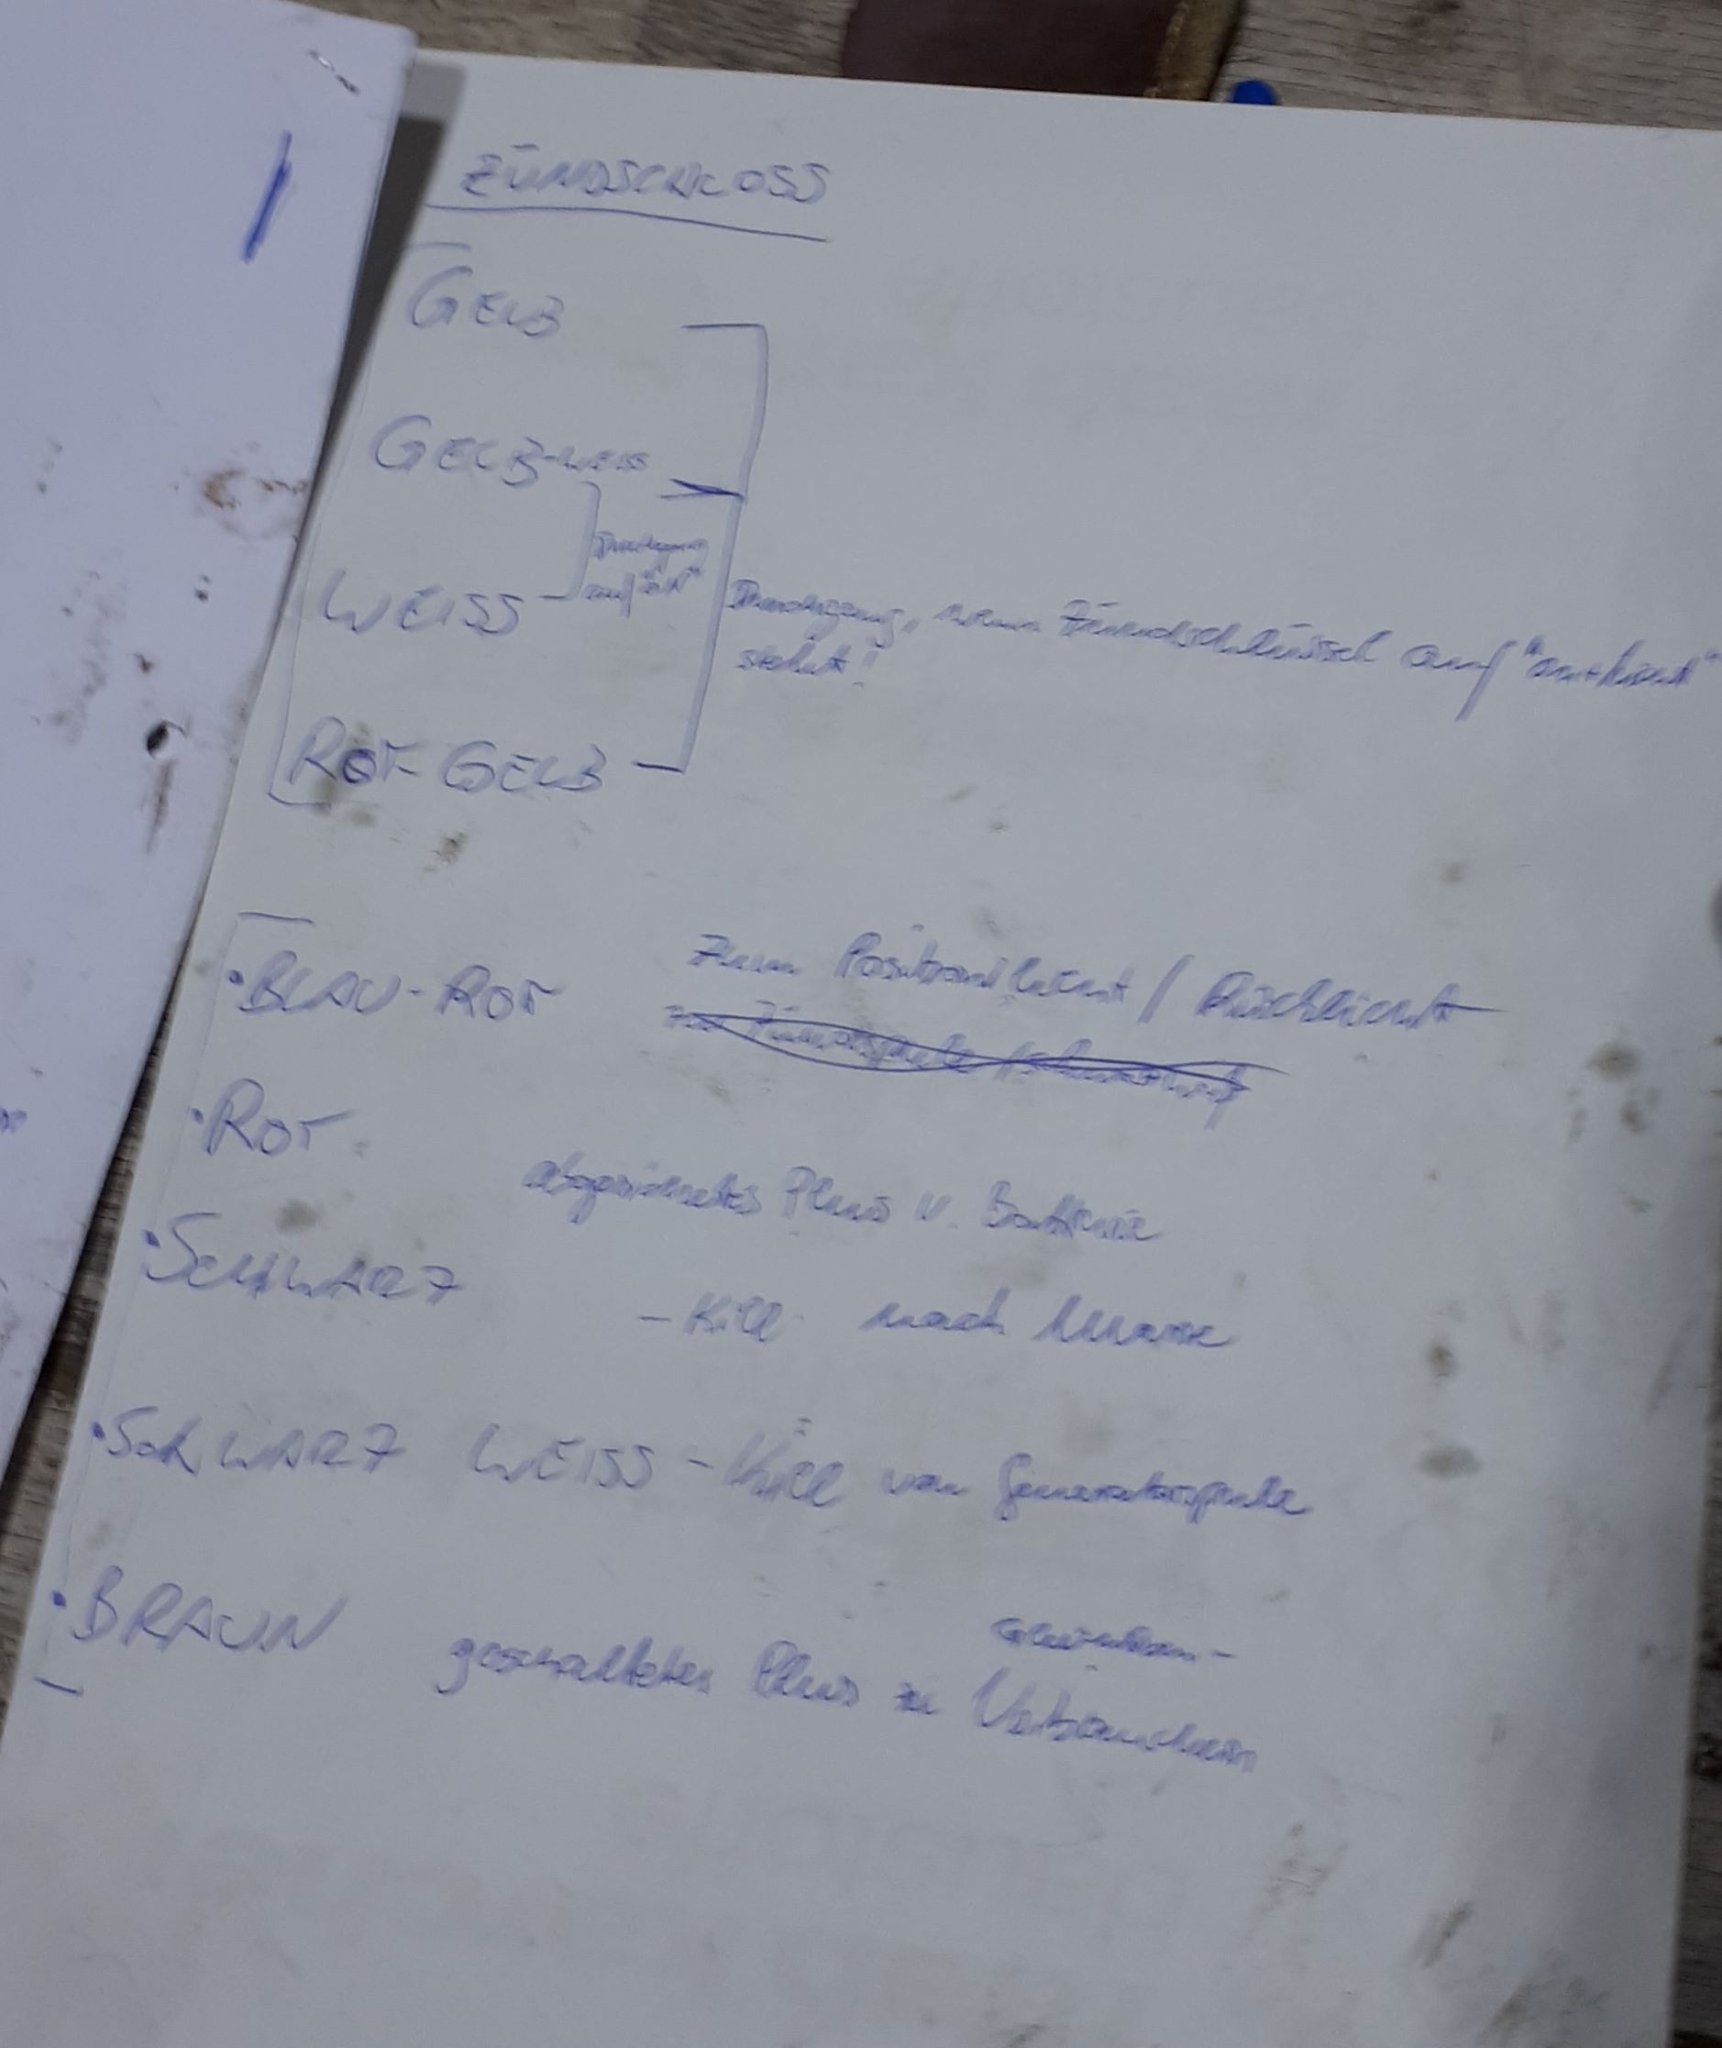 ZÜNDSCHLOSS
GELB
GELB-WEISS
Durchgang
auf
WEISS
Durchgang, wenn Zündschlüssel auf
steht!
ROT-GELB
BLAU-ROT zum Positionslicht / Rücklicht
ROT
abgesichertes Plus v. Batterie
SCHWARZ - Kill nach Masse
SCHWARZ WEISS - Kill von Generatorspule
BRAUN
geschaltetes Plus zu Verbrauchern